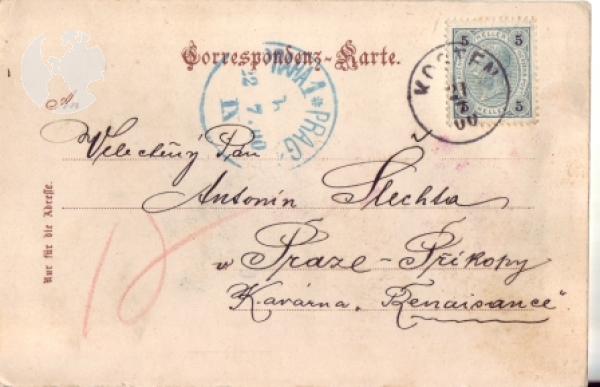 Correspondenz-Karte.
An
5 HELLER 5
5 HELLER 5
KOSTEN
21
7
00
PRAHA 1 * PRAG
22 7. 00
IX
Velectěný Pán
Antonín Šlechta
v Praze - Příkopy
Kavárna „Renaisance"
Nur für die Adresse.
12